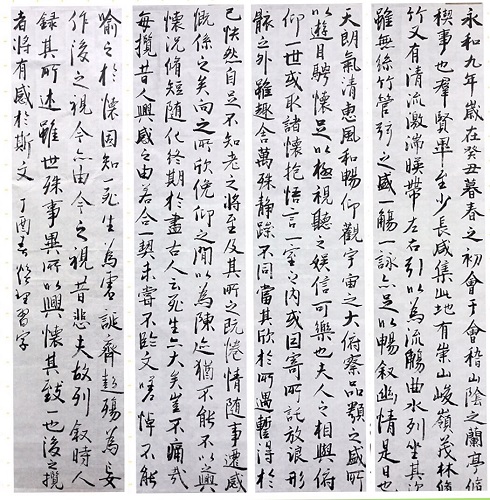 永和九年歲在癸丑暮春之初會于會稽山陰之蘭亭脩
禊事也羣賢畢至少長咸集此地有崇山峻嶺茂林脩
竹又有清流激湍暎帶左右引以為流觴曲水列坐其次
雖無絲竹管弦之盛一觴一詠亦足以暢叙幽情是日也
天朗氣清惠風和暢仰觀宇宙之大俯察品類之盛所
以遊目騁懷足以極視聽之娱信可樂也夫人之相與俯
仰一世或取諸懷抱悟言一室之內或因寄所託放浪形
骸之外雖趣舍萬殊静躁不同當其欣於所遇暫得於
己怏然自足不知老之將至及其所之既惓情隨事遷感
慨係之矣向之所欣俛仰之間以為陳迹猶不能不以之興
懷況脩短隨化終期於盡古人云死生亦大矣豈不痛哉
每攬昔人興感之由若合一契未嘗不臨文嗟悼不能
喻之於懷固知一死生為虛誕齊彭殤為妄
作後之視今亦由今之視昔悲夫故列叙時人
錄其所述雖世殊事異所以興懷其致一也後之攬
者將有感於斯文 丁酉春 習字